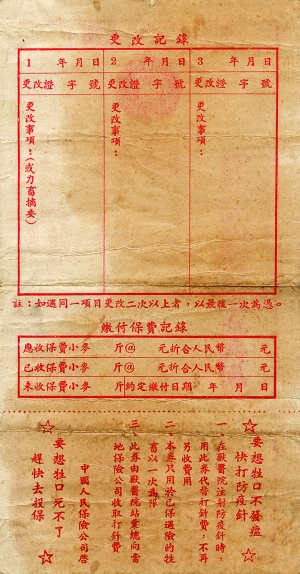 更改記錄
1 年月日 2 年月日 3 年月日
更改證 字 號 更改證 字 號 更改證 字 號
更改事項：（或力畜摘要）
更改事項：
更改事項：
註：如遇同一項目更改二次以上者，以最後一次為憑。
繳付保費記錄
應收保費小麥 斤@ 元折合人民幣 元
已收保費小麥 斤@ 元折合人民幣 元
未收保費小麥 斤約定繳付日期 年 月 日
☆要想牲口不發瘟
快打防疫針☆
一、在獸醫院注射防疫針時，
用此券代替打針費，不再
另收費用
二、本券只用於已保過險的牲
畜以一次為限
三、此券由獸醫院站彙總向當
地保險公司收取打針費
中國人民保險公司啓
☆要想牲口死不了
趕快去投保☆